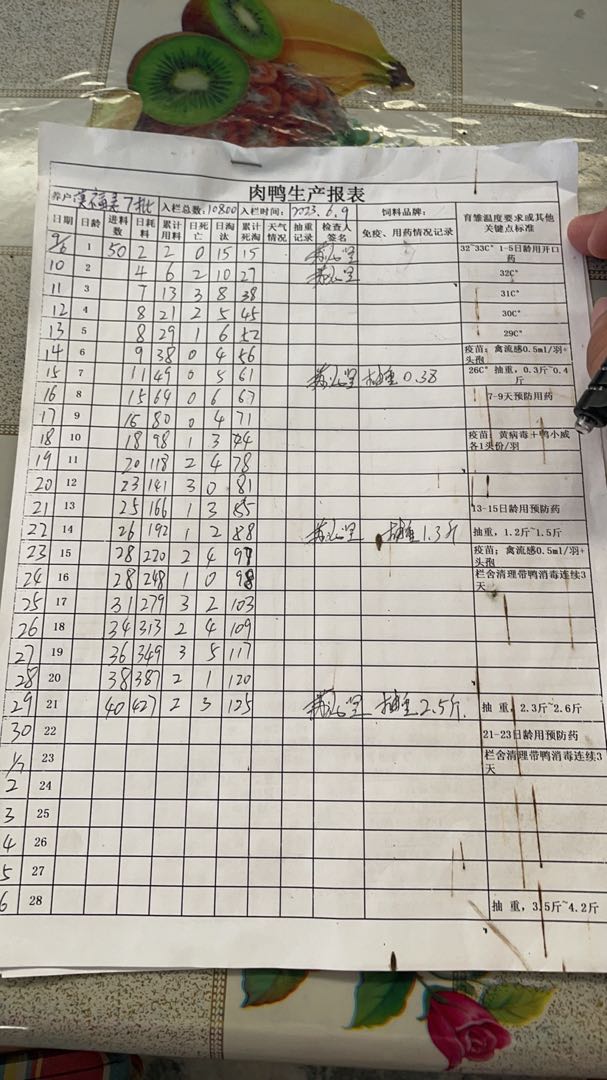 肉鸭生产报表
养户 7批 入栏总数:10800 入栏时间:2023.6.9 饲料品牌: 育雏温度要求或其他关键点标准
日期 日龄 进料数 日耗料 累计用料 日死亡 日淘汰 累计死淘 天气情况 抽重记录 检查人签名 免疫、用药情况记录
9/6 1 50 2 2 0 15 15 32~33C° 1-5日龄用开口药
10 2 4 6 2 10 27 32C°
11 3 7 13 3 8 38 31C°
12 4 8 21 2 5 45 30C°
13 5 8 29 1 6 52 29C°
14 6 9 38 0 4 56 疫苗:禽流感0.5ml/羽+头孢
15 7 11 49 0 5 61 抽重0.38 26C° 抽重,0.3斤~0.4斤
16 8 15 64 0 6 67 7-9天预防用药
17 9 16 80 0 4 71
18 10 18 98 1 3 疫苗:黄病毒+鸭小威各1头份/羽
19 11 20 118 2 4 78
20 12 23 141 3 0 81
21 13 25 166 1 3 85 13-15日龄用预防药
22 14 26 192 1 2 88 抽重1.3斤 抽重,1.2斤~1.5斤
23 15 28 220 2 4 疫苗:禽流感0.5ml/羽+头孢
24 16 28 248 1 0 98 栏舍清理带鸭消毒连续3天
25 17 31 279 3 2 103
26 18 34 313 2 4 109
27 19 36 349 3 5 117
28 20 38 387 2 1 120
29 21 40 427 2 3 125 抽重2.5斤. 抽重,2.3斤~2.6斤
30 22 21-23日龄用预防药
1/7 23 栏舍清理带鸭消毒连续3天
2 24
3 25
4 26
5 27
6 28 抽重,3.5斤~4.2斤